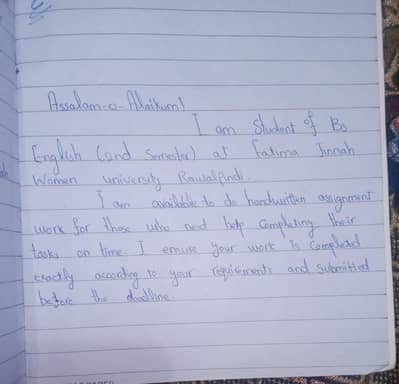 Assalam-o-Alaikum!
I am student of Bs
English (2nd Semester) at Fatima Jinnah
Women university Rawalpindi.
I am available to do handwritten assignment
work for those who need help completing their
tasks on time. I ensure your work is completed
exactly according to your requirements and submitted
before the deadline.